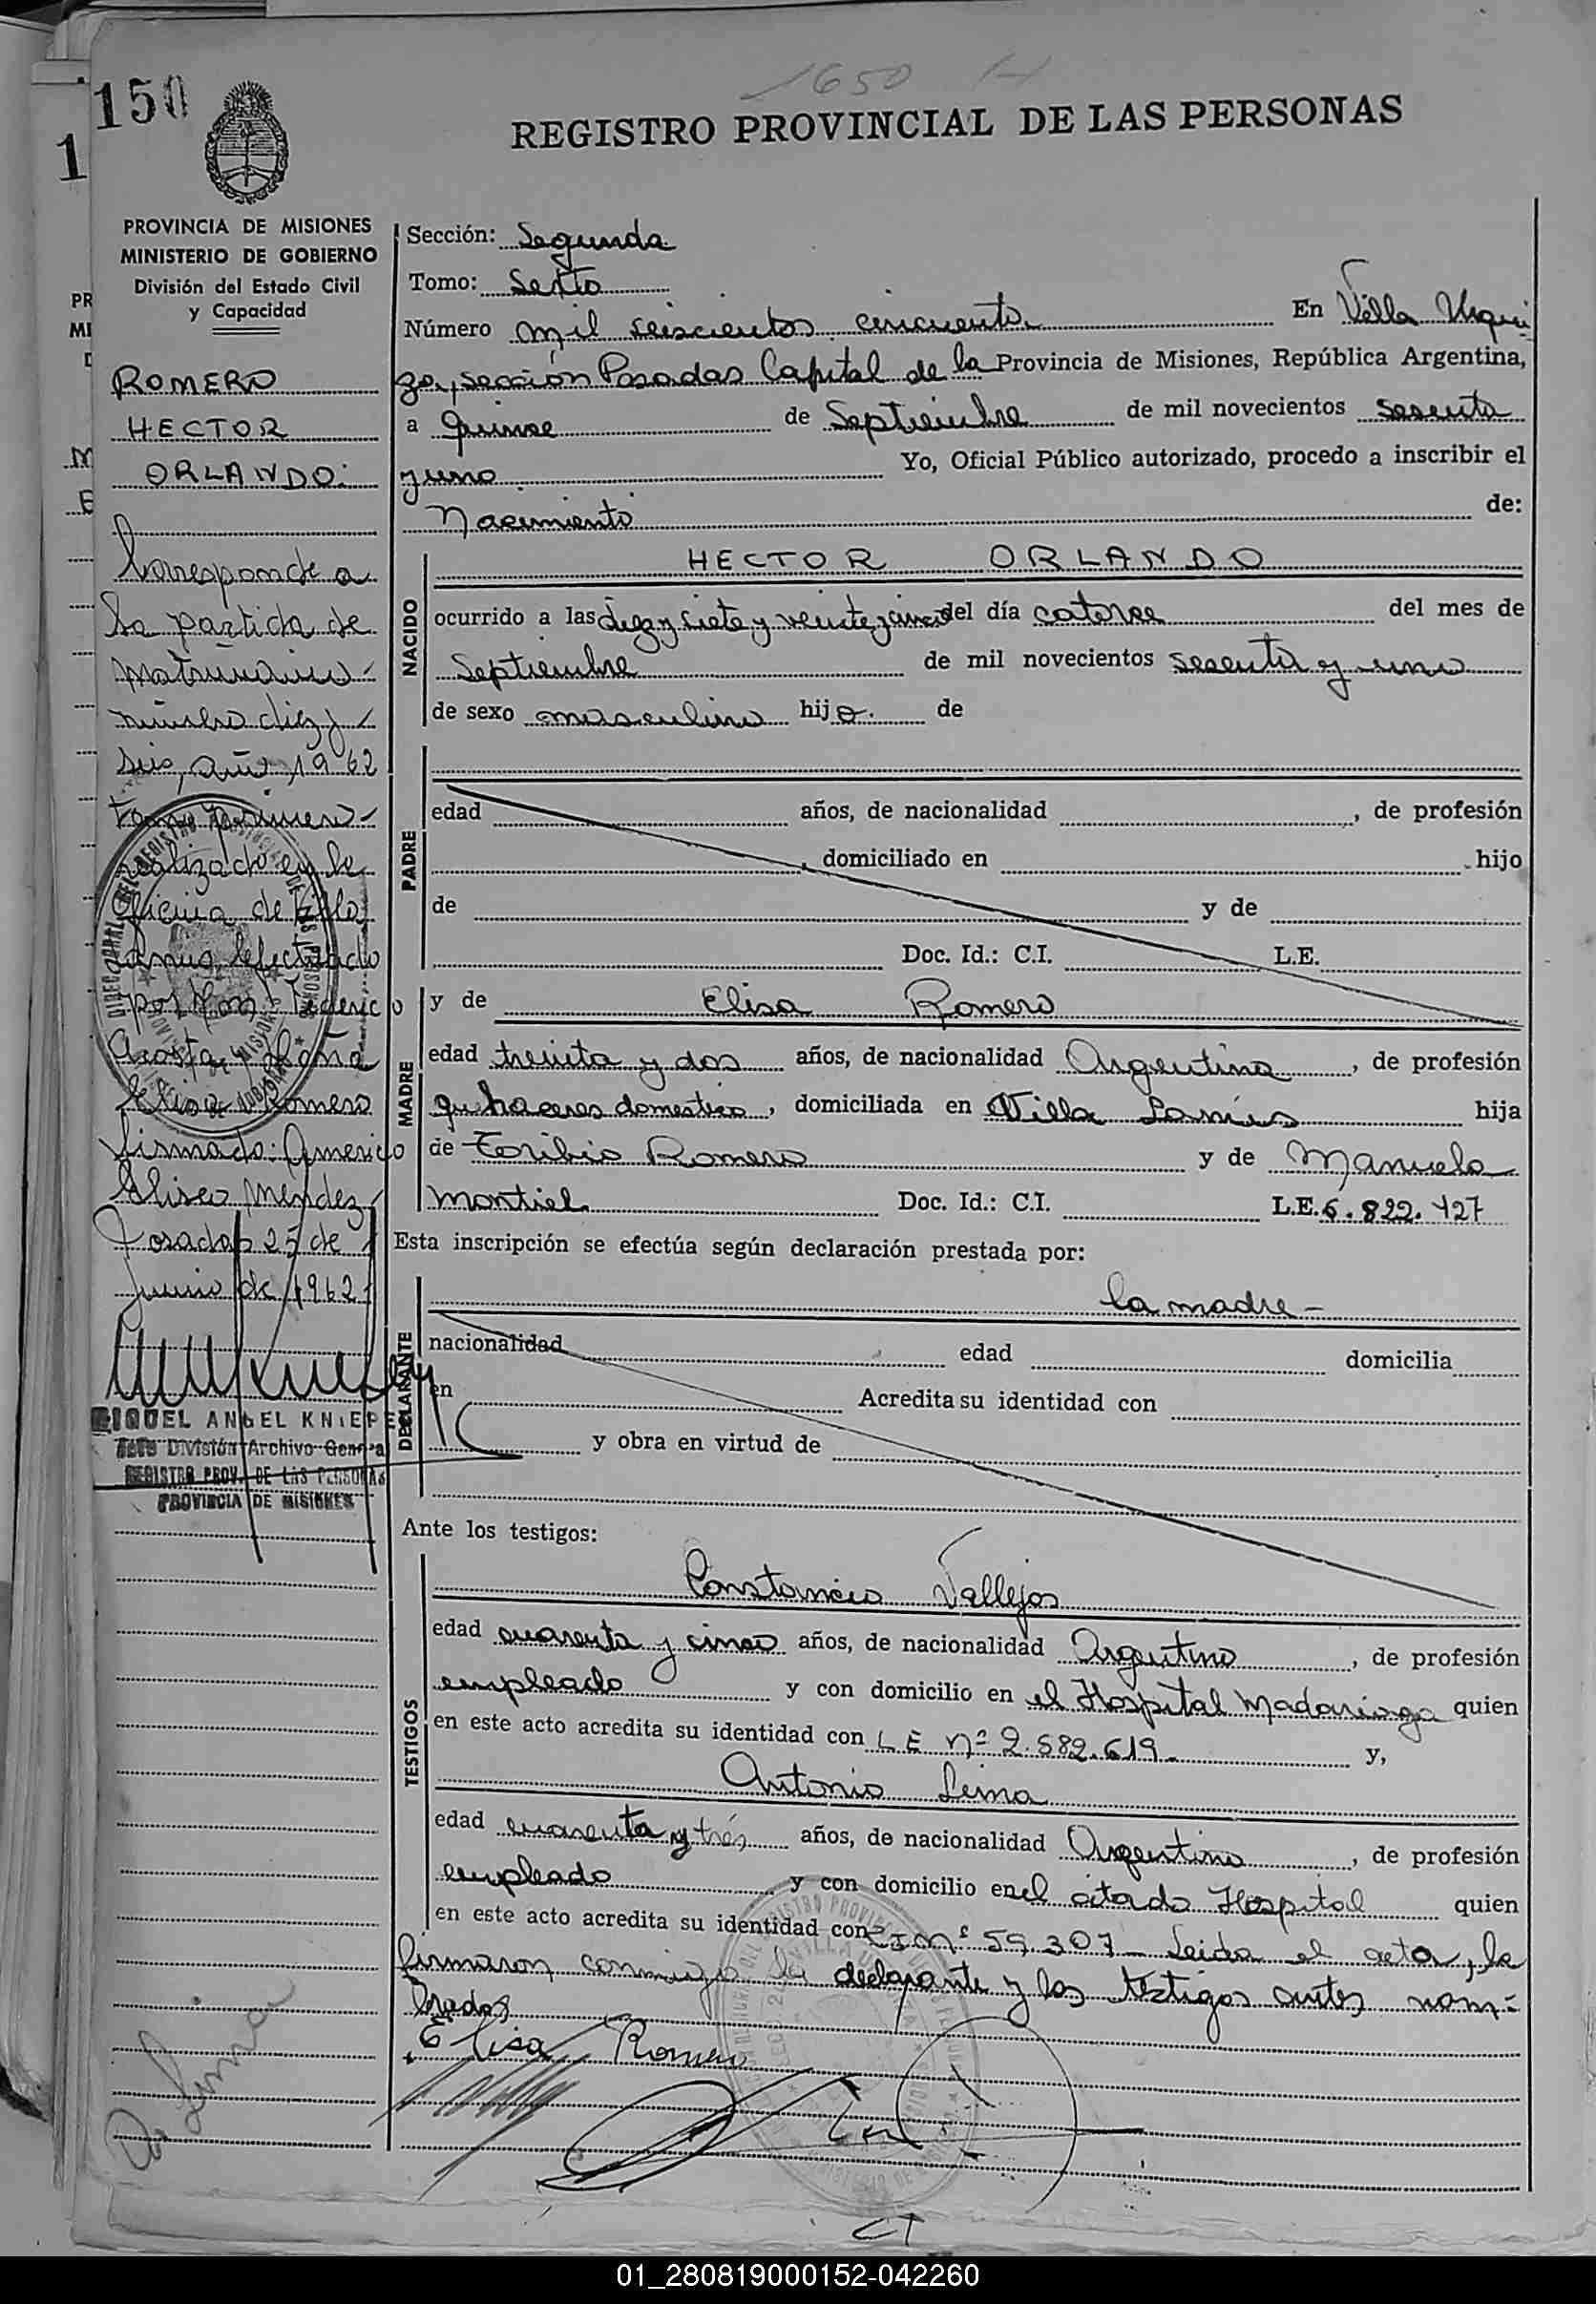 1650
150
1
REGISTRO PROVINCIAL DE LAS PERSONAS
PROVINCIA DE MISIONES
MINISTERIO DE GOBIERNO
División del Estado Civil
y Capacidad
ROMERO
HECTOR
ORLANDO.
Corresponde a
la partida de
matrimonio
número diez y
seis, año 1962
tomo primero
realizado en la
Oficina de Villa
Lanus efectuado
por Don Federico
Acosta y Doña
Elisa Romero
firmado: Americo
Eliseo Mendez
Posadas 25 de
Junio de 1962
MIGUEL ANGEL KNIEPE
Jefe División Archivo General
REGISTRO PROV. DE LAS PERSONAS
PROVINCIA DE MISIONES
A. Lima
Sección: Segunda
Tomo: Sexto
Número mil seiscientos cincuenta En Villa Urqui
za, sección Posadas Capital de la Provincia de Misiones, República Argentina,
a quince de Septiembre de mil novecientos sesenta
y uno Yo, Oficial Público autorizado, procedo a inscribir el
Nacimiento de:
NACIDO
HECTOR ORLANDO
ocurrido a las diez y siete y veinte y cinco del día catorce del mes de
Septiembre de mil novecientos sesenta y uno
de sexo masculino hijo. de
PADRE
edad años, de nacionalidad , de profesión
, domiciliado en hijo
de y de
Doc. Id.: C.I. L.E.
MADRE
y de Elisa Romero
edad treinta y dos años, de nacionalidad Argentina, de profesión
quehaceres domestico, domiciliada en Villa Lanús hija
de Toribio Romero y de Manuela
Montiel Doc. Id.: C.I. L.E. 6.822.427
Esta inscripción se efectúa según declaración prestada por:
DECLARANTE
la madre-
nacionalidad edad domicilia
en Acredita su identidad con
y obra en virtud de
Ante los testigos:
TESTIGOS
Constancio Vallejos
edad cuarenta y cinco años, de nacionalidad Argentino, de profesión
empleado y con domicilio en el Hospital Madariaga quien
en este acto acredita su identidad con L E nº 2.582.619. y,
Antonio Lima
edad cuarenta y trés años, de nacionalidad Argentino, de profesión
empleado y con domicilio en el citado Hospital quien
en este acto acredita su identidad con C I nº 59.307 Leida el acta, la
firmaron conmigo la declarante y los testigos antes nom=
brados
Elisa Romero
01_280819000152-042260